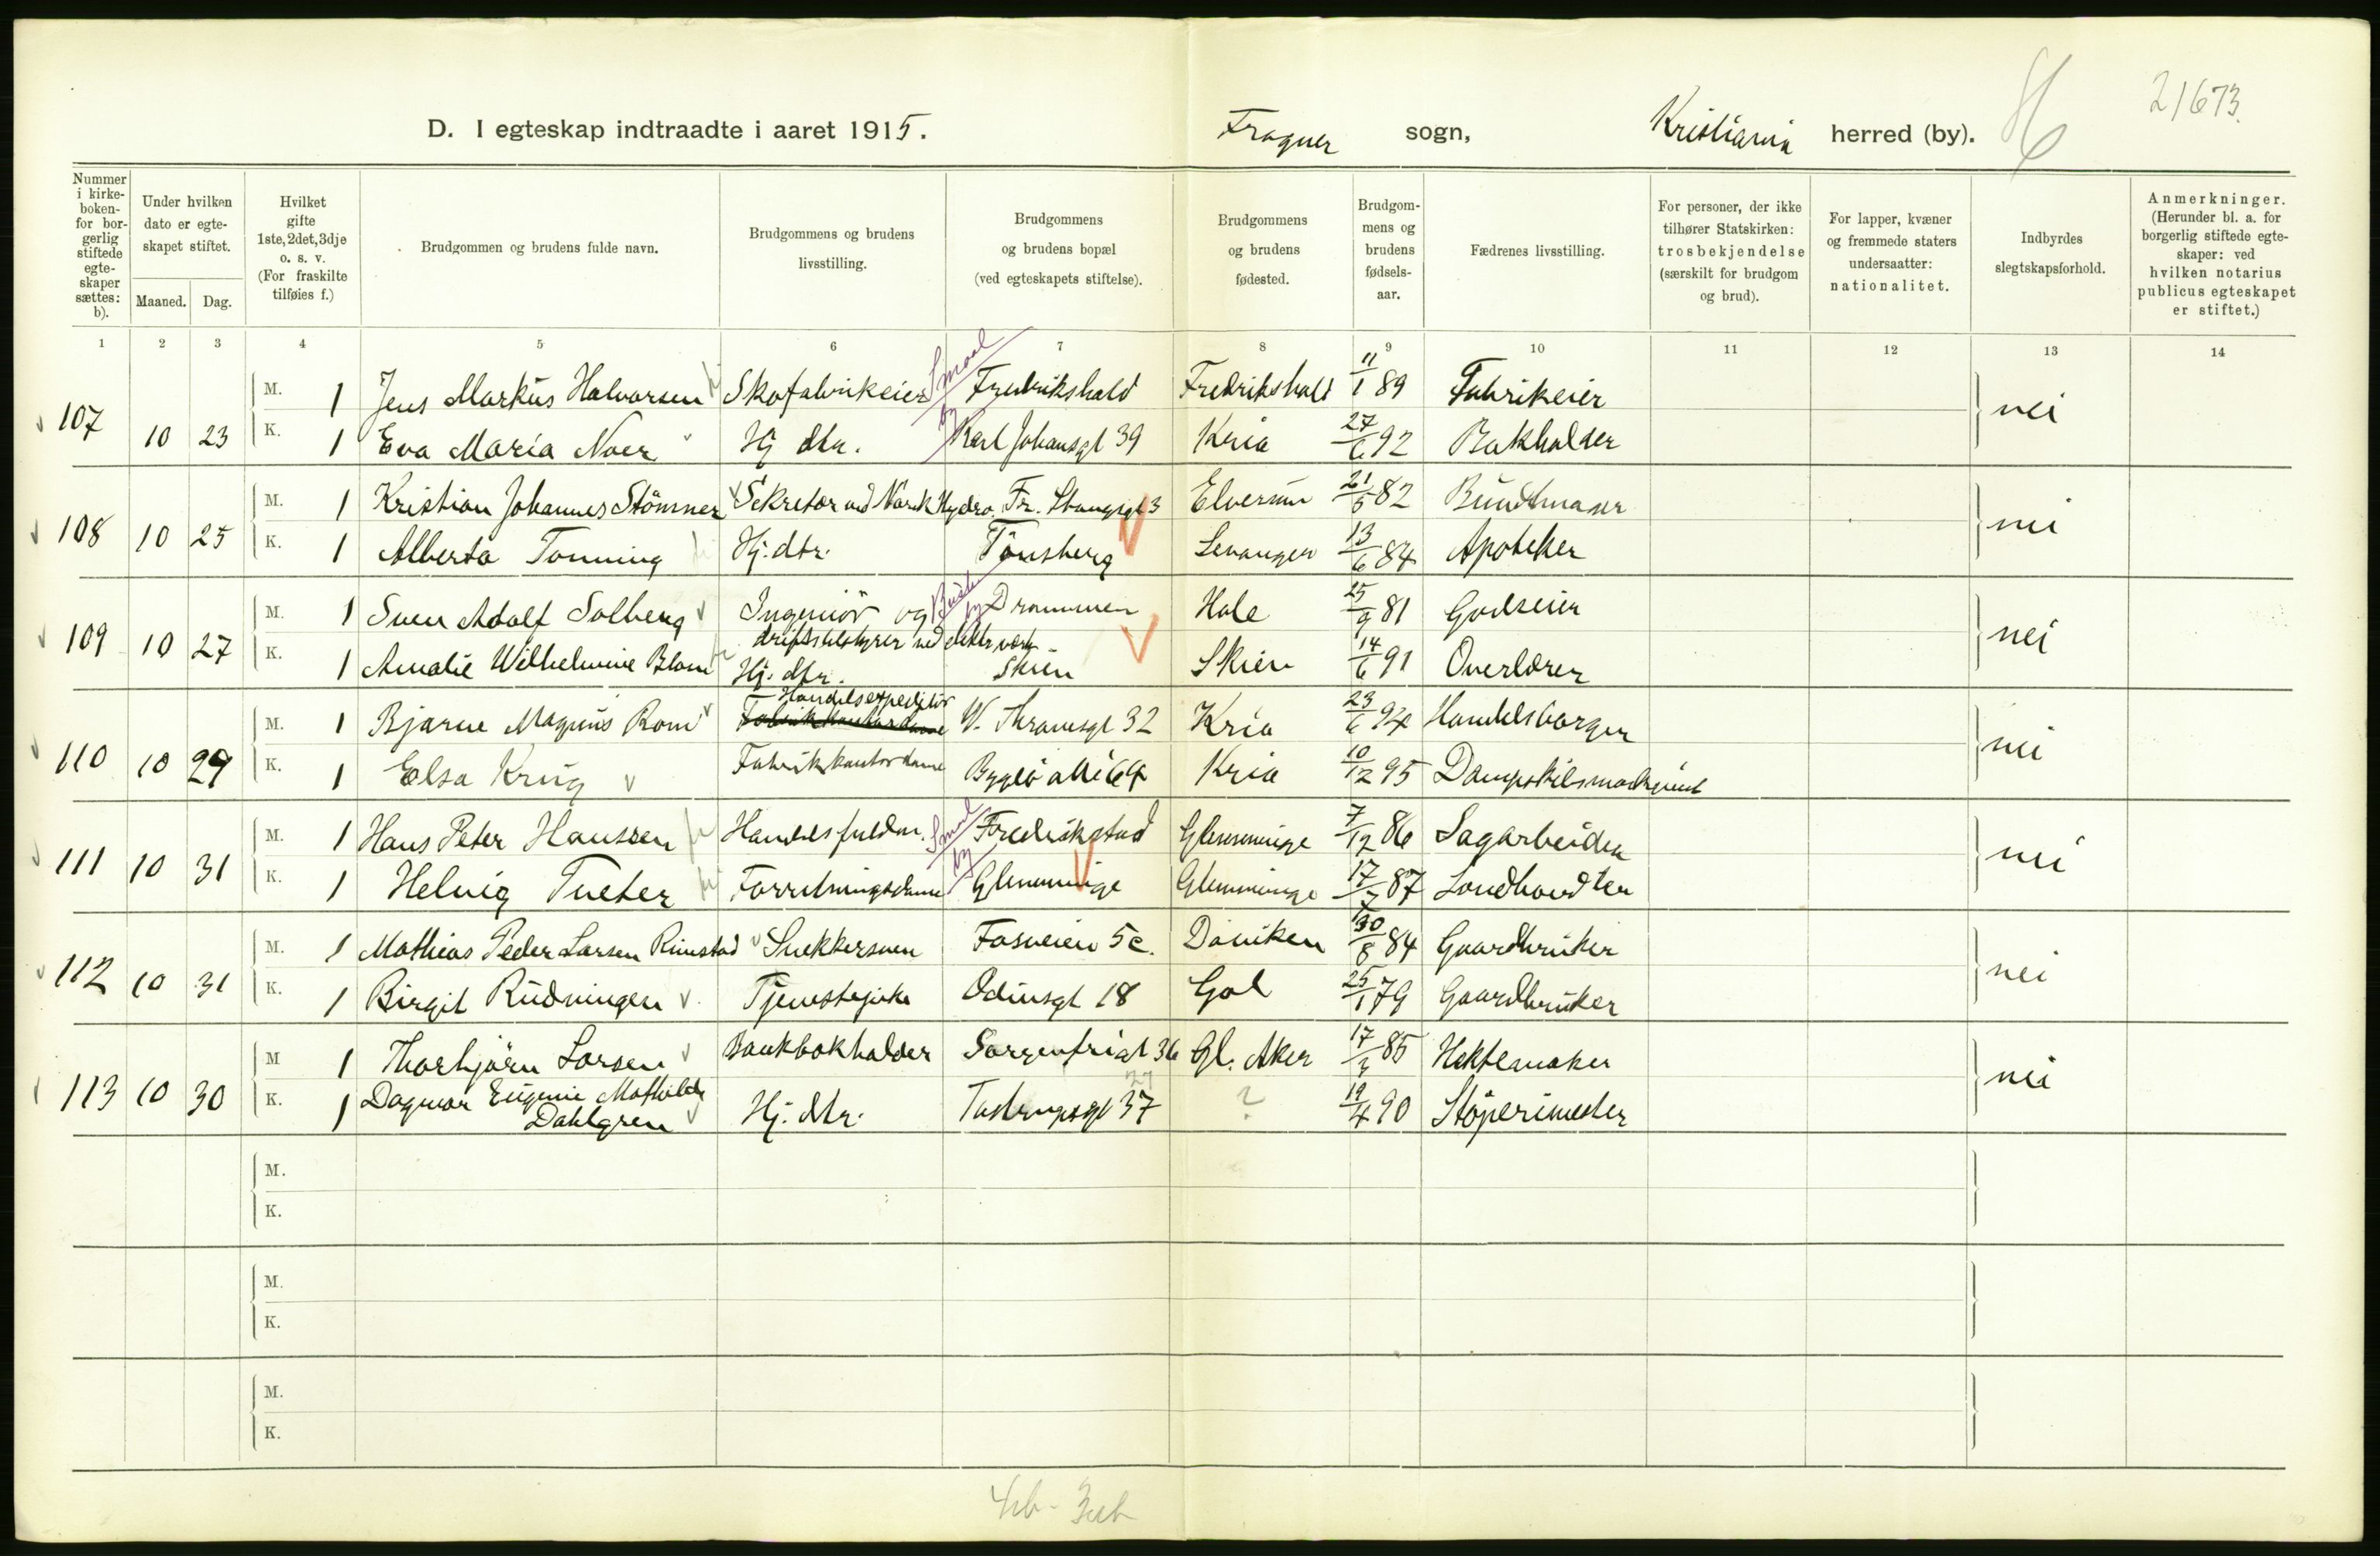 21673.
D. I egteskap indtraadte i aaret 1915.
Frogner sogn, Kristiania herred (by).
Nummer i kirke-boken- for bor-gerlig stiftede egte-skaper sættes: b).
Under hvilken dato er egte-skapet stiftet.
Maaned. Dag.
Hvilket gifte 1ste, 2det, 3dje o. s. v. (For fraskilte tilføies f.)
Brudgommen og brudens fulde navn.
Brudgommens og brudens livsstilling.
Brudgommens og brudens bopæl (ved egteskapets stiftelse).
Brudgommens og brudens fødested.
Brudgom-mens og brudens fødsels-aar.
Fædrenes livsstilling.
For personer, der ikke tilhører Statskirken: trosbekjendelse (særskilt for brudgom og brud).
For lapper, kvæner og fremmede staters undersaatter: nationalitet.
Indbyrdes slegtskapsforhold.
Anmerkninger. (Herunder bl. a. for borgerlig stiftede egte-skaper: ved hvilken notarius publicus egteskapet er stiftet.)
1 2 3 4 5 6 7 8 9 10 11 12 13 14
107 10 23 nei
M. 1 Jens Markus Halvorsen Skofabrikeier Smaal by Fredrikshald Fredrikshald 11/1 89 Fabrikeier
K. 1 Eva Maria Noer Hj dtr. Karl Johansgt 39 Kria 27/6 92 Bokholder
108 10 25 nei
M. 1 Kristian Johannes Stömner Sekretær ved Norsk Hydro. Fr. Stangsgt 3 Elverum 21/5 82 Bundtmaker
K. 1 Alberta Tonning Hj. dtr. Tönsberg Levanger 13/6 84 Apoteker
109 10 27 nei
M. 1 Sven Adolf Solberg Ingeniör og Busk by Drammen Hole 25/9 81 Godseier
driftsbestyrer ved elektr. verk
K. 1 Amalie Wilhelmine Blom Hj. dtr. Skien Skien 14/6 91 Overlærer
110 10 29 nei
Handelsexpeditör
M. 1 Bjarne Magnus Rom Fabrikkontordame W. Thranesgt 32 Kria 23/6 94 Handelsborger
K. 1 Elsa Krug Fabrikkontordame Bygdö allé 64 Kria 10/12 95 Dampskibsmaskinist
111 10 31 nei
M. 1 Hans Peter Hanssen Handelsfuldm. Smaal by Fredrikstad Glemminge 7/12 86 Sagarbeider
K. 1 Helvig Tveter Forretningsdame Glemminge Glemminge 17/7 87 Landhandler
112 10 31 nei
M. 1 Mathias Peder Larsen Rimstad Snekkersven Fosveien 5c. Döviken 30/8 84 Gaardbruker
K. 1 Birgit Rudningen Tjenestepike Odinsgt 18 Gol 25/1 79 Gaardbruker
113 10 30 nei
M 1 Thorbjörn Larsen Bankbokholder Sorgenfrigt 36 Gl. Aker 17/3 85 Hektemaker
27
K. 1 Dagmar Eugenie Mathilde Dahlgren Hj. dtr. Tostrupsgt 37 ? 19/4 90 Stöperimester
M.
K.
M.
K.
M.
K.